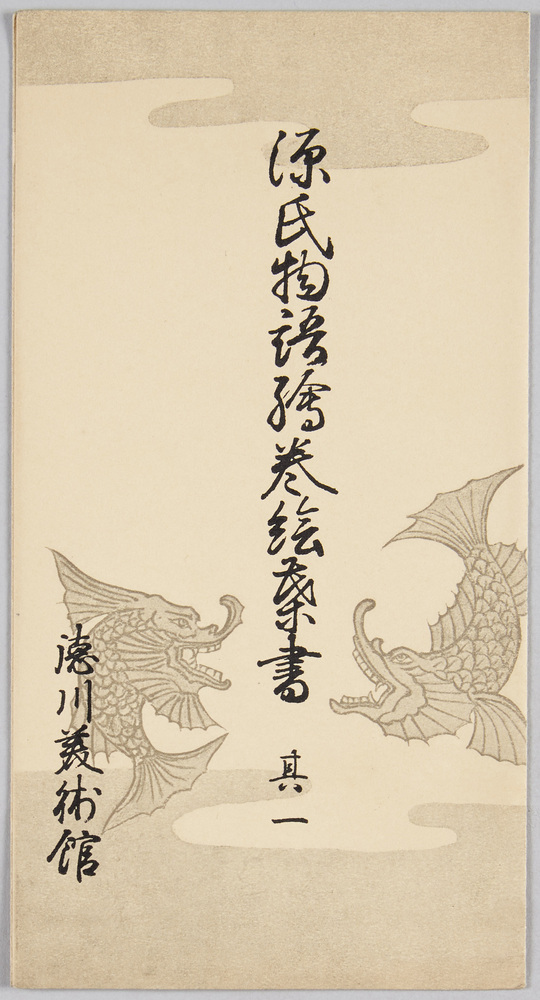 源氏物語繪巻絵葉書 其一
徳川美術館